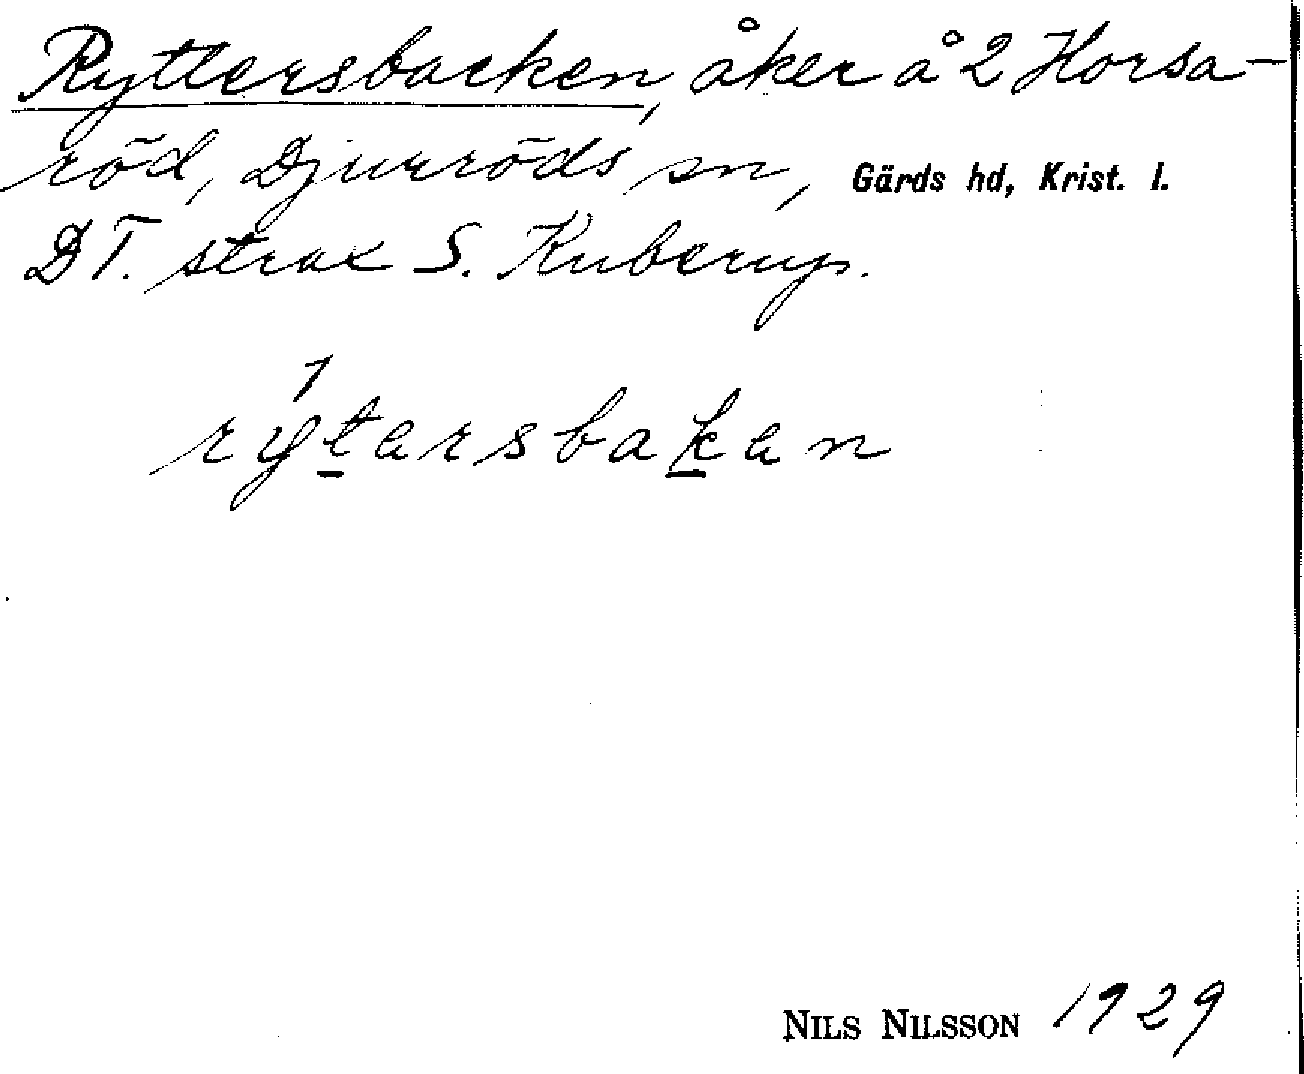 Ryttersbacken, åker å 2 Horsa-
röd, Djurröds sn, Gärds hd, Krist. l.
DT. strax S. Kuberup.
rýtarsbakan
NILS NILSSON 1929